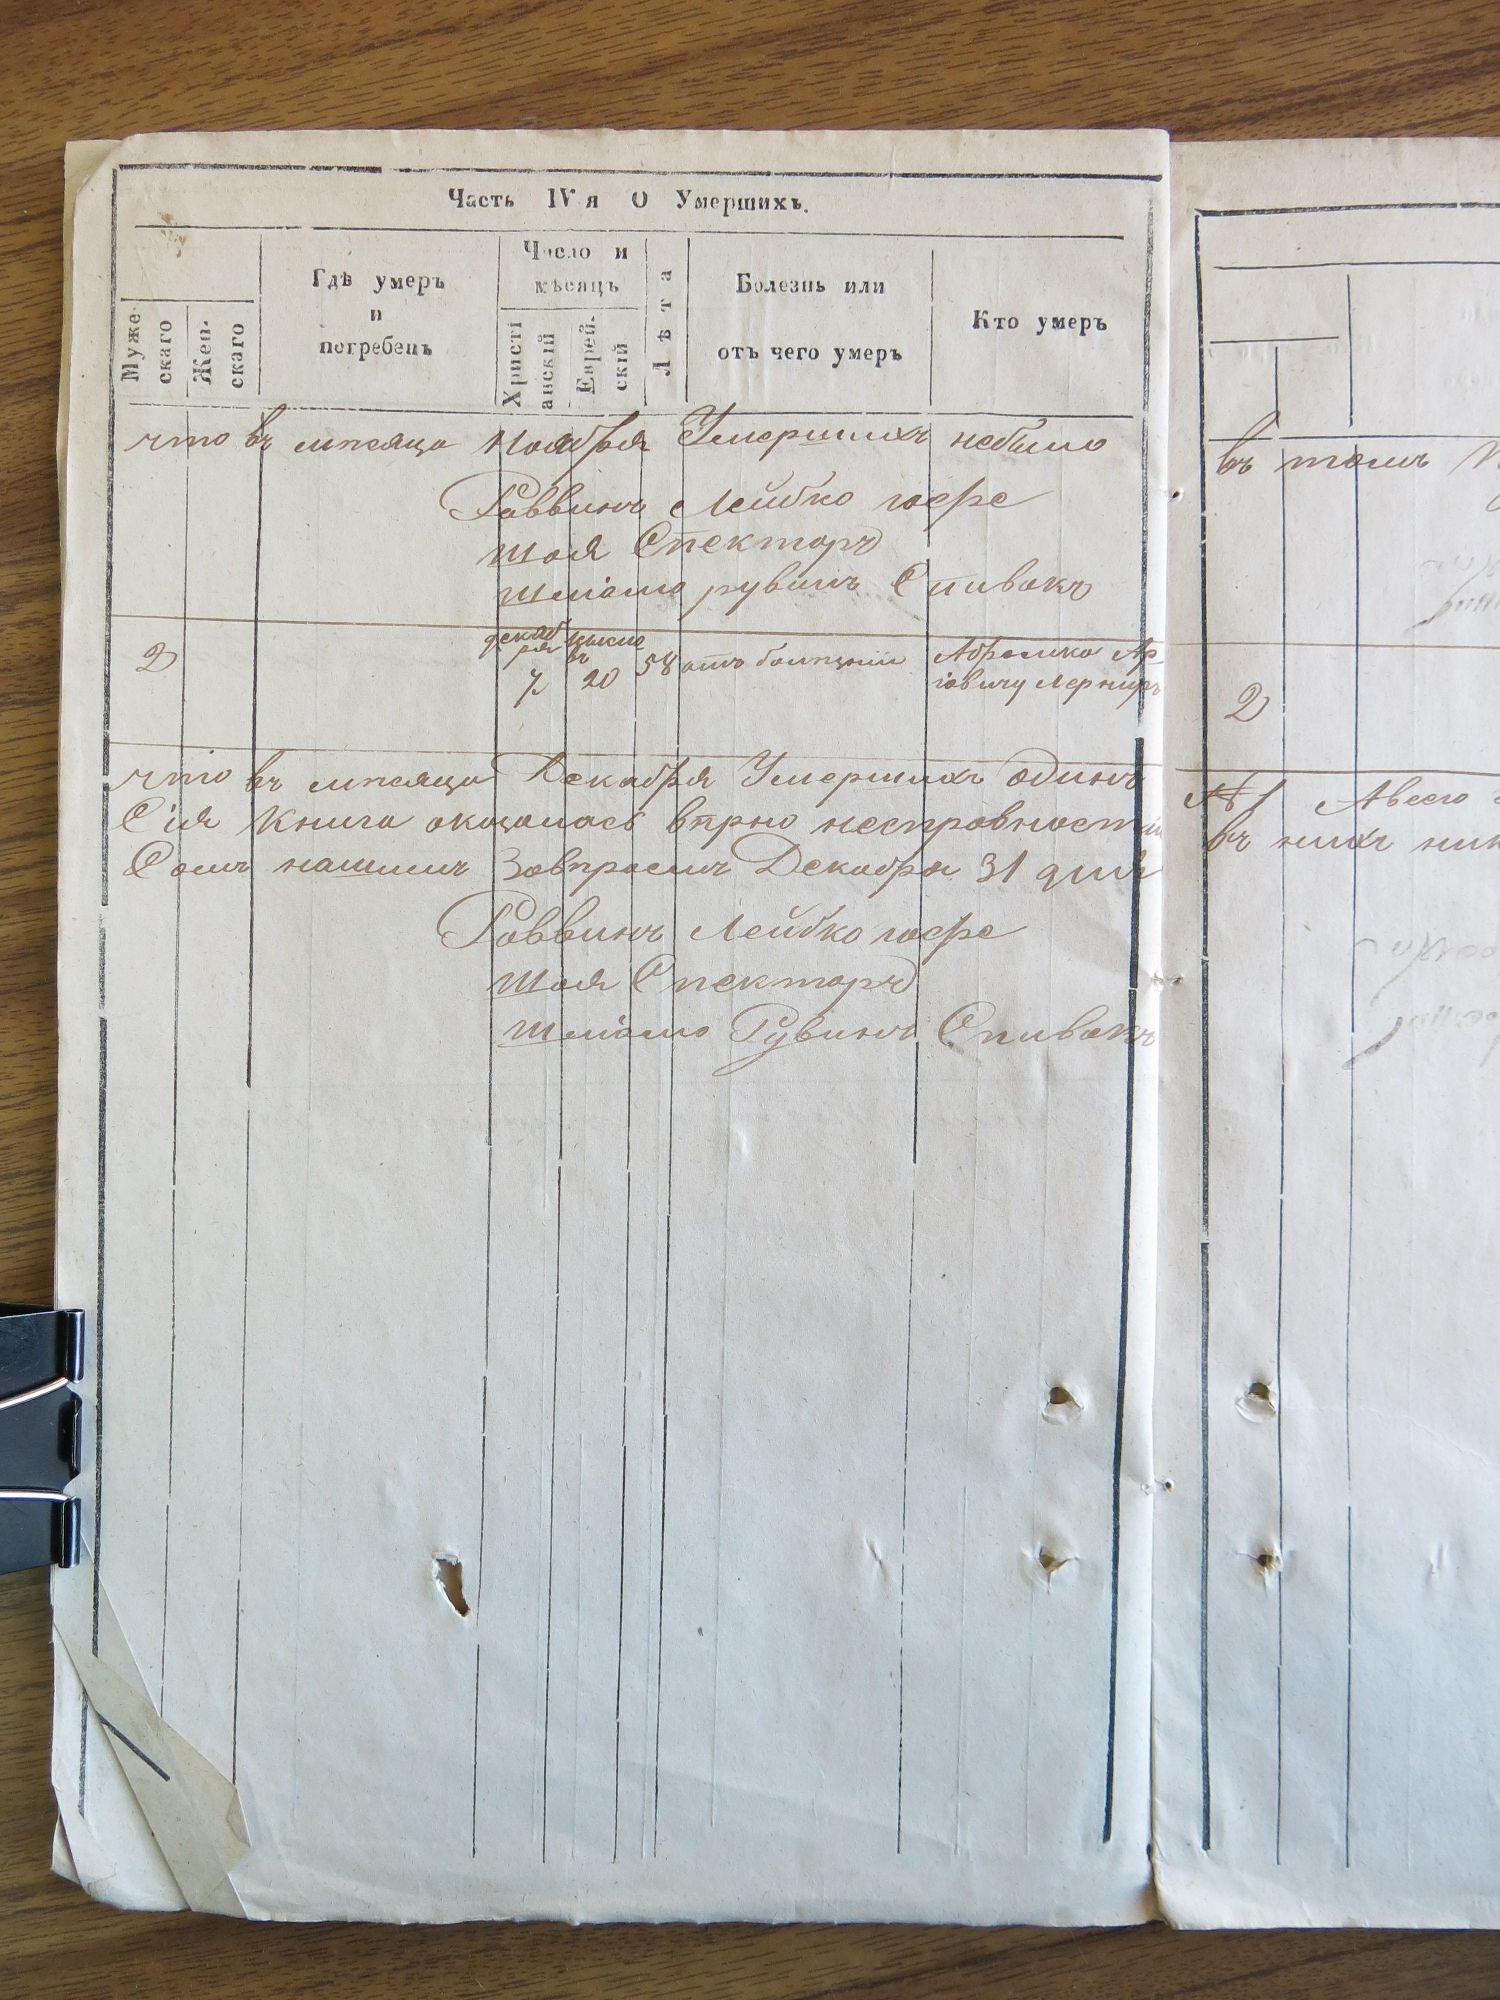 Часть IV я О Умершихъ.
Муже-
скаго
Жен-
скаго
Гдѣ умеръ
и
погребенъ
Число и
мѣсяцъ
Христі
анскій
Еврей-
скій
Лѣта
Болезнь или
отъ чего умеръ
Кто умеръ
что въ мѣсяца Ноября Умершихъ небыло
Раввинъ Лейбко
шая Спекторъ
шліомо рувинъ Спивакъ
2
декаб
ря
7
въ
20
58
отъ
Абрамко Ар
іовичу Лернеръ
что въ мѣсяца Декабря Умершихъ одинъ
Сія Книга оказалась вѣрно
нашимъ Декабря 31 дня
Раввинъ Лейбко
шая Спекторъ
шліомо Рувинъ Спивакъ
въ томъ
2
№ 1 Авсего
въ нихъ